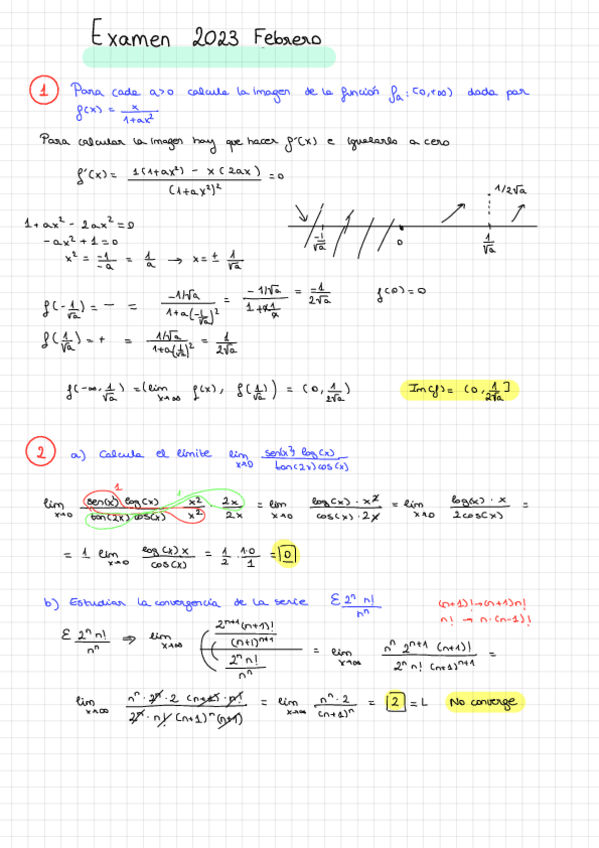 Examen 2023 Febrero
1 Para cada a>0 calcula la imagen de la función fa: (0,+∞) dada por
f(x) = x/(1+ax²)
Para calcular la imagen hay que hacer f'(x) e igualarlo a cero
f'(x) = (1(1+ax²) - x(2ax))/(1+ax²)² = 0
1+ax² - 2ax² = 0
-ax² + 1 = 0
x² = -1/-a = 1/a → x = ± 1/√a
-1/√a 0 1/√a 1/2√a
f(-1/√a) = - = (-1/√a)/(1+a(-1/√a)²) = (-1/√a)/(1+a1/a) = -1/2√a f(0)=0
f(1/√a) = + = (1/√a)/(1+a(1/√a)²) = 1/2√a
f(-∞, 1/√a) = (lim x→∞ f(x), f(1/√a)) = (0, 1/2√a) Im(f) = (0, 1/2√a]
2 a) Calcula el límite lim x→0 (sen(x²) log(x))/(tan(2x)cos(x))
1 1
lim x→0 (sen(x²) log(x))/(tan(2x) cos(x)) · x²/x² · 2x/2x = lim x→0 (log(x) · x²)/(cos(x) · 2x) = lim x→0 (log(x) · x)/(2cos(x)) =
= 1 lim x→0 (log(x) x)/cos(x) = 1/2 · 1·0/1 = 0
b) Estudiar la convergencia de la serie Σ 2ⁿ n!/nⁿ (n+1)! → (n+1)n!
n! → n·(n-1)!
Σ 2ⁿ n!/nⁿ ⇒ lim x→∞ ((2ⁿ⁺¹(n+1)!/(n+1)ⁿ⁺¹)/(2ⁿ n!/nⁿ)) = lim x→∞ (nⁿ 2ⁿ⁺¹ (n+1)!)/(2ⁿ n! (n+1)ⁿ⁺¹) =
lim x→∞ (nⁿ · 2ⁿ · 2 (n+1) · n!)/(2ⁿ · n! (n+1)ⁿ (n+1)) = lim x→∞ (nⁿ · 2)/(n+1)ⁿ = 2 = L No converge